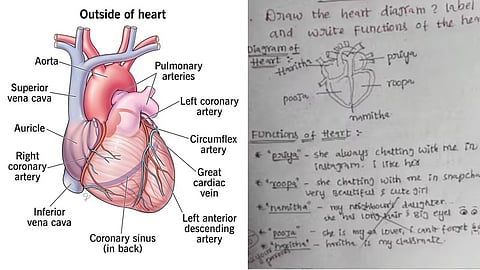 Outside of heart
Aorta
Pulmonary
arteries
Superior
vena cava
Left coronary
artery
Auricle
Circumflex
artery
Right
coronary
artery
Great
cardiac
vein
Inferior
vena cava
Left anterior
descending
artery
Coronary sinus
(in back)
Draw the heart diagram? Label
and write Functions of the hea
Diagram of
Heart :-
Haritha
priya
pooja
roopa
namitha
Functions of Heart :-
"priya" - she always chatting with me in
instagram. i like her
"roopa" - she chatting with me in snapcha
very Beautiful & cute girl
"namitha" - my neighbour's daughter...
long hair & Big eyes
"pooja" - she is my lover, i can't forget
"haritha" - haritha is my classmate.